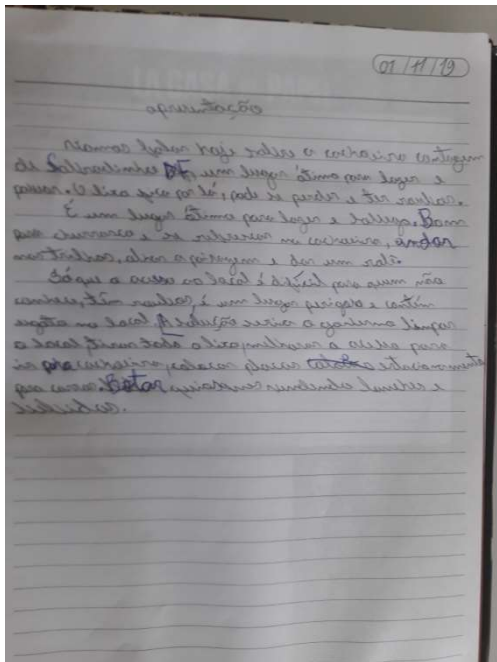 01/11/19
apresentação
Vamos falar hoje sobre a cachoeira contagem
de Sobradinho DF, um lugar ótimo para lazer e
passear. O lixo fica por lá, pode se perder e ter roubos.
É um lugar ótimo para lazer e beleza. Bom
para churrasco e se refrescar na cachoeira, andar
nas trilhas, ver a paisagem e dar um rolê.
Só que o acesso ao local é difícil para quem não
conhece, têm roubos, é um lugar perigoso e contém
esgoto no local. A solução seria o governo limpar
o local, tirar todo o lixo, melhorar o acesso para
ir pra cachoeira, colocar placas estacionamento
para carros. Botar quiosques vendendo lanches e
bebidas.